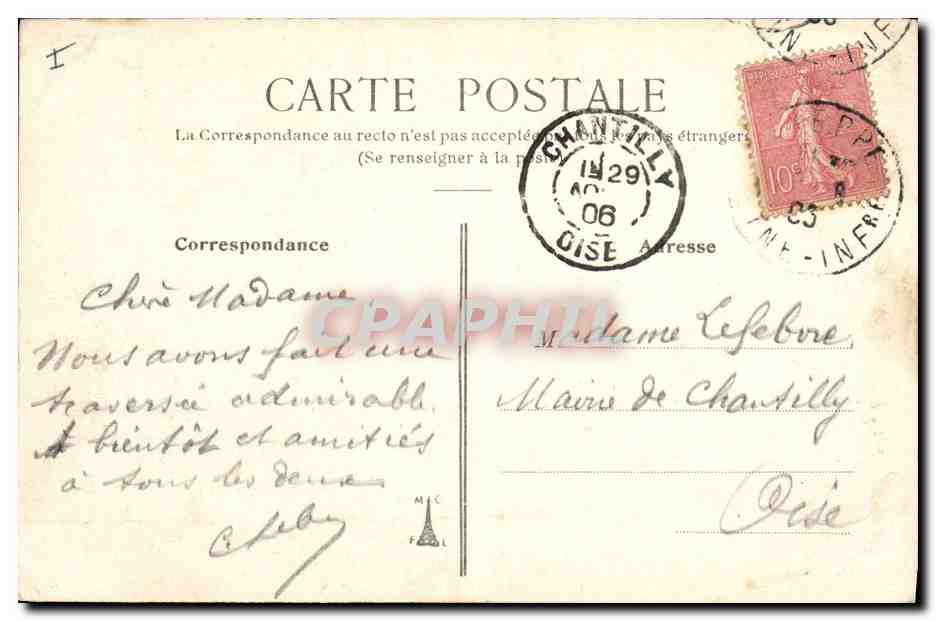 I
CARTE POSTALE
La Correspondance au recto n'est pas acceptée par tous les pays étrangers
(Se renseigner à la poste)
CHANTILLY
29
06
OISE
REPUBLIQUE FRANÇAISE
10c
EPPE
INE-INFRE
INE-INF
Correspondance
Adresse
Chère Madame,
Nous avons fait une
traversée admirable.
A bientôt et amitiés
à tous les deux
M C
F L
CPAPHIL
Madame Lefebvre,
Mairie de Chantilly
Oise